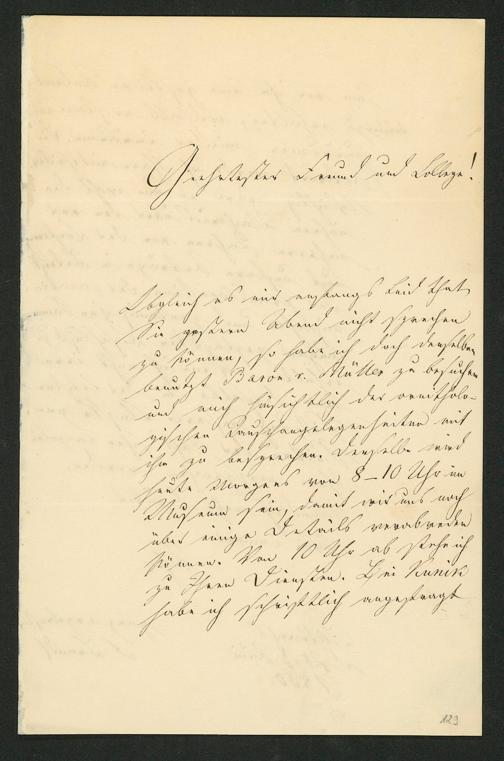 Geehrtester Freund und College!
Obgleich es mir anfangs leid that
Sie gestern Abend nicht sprechen
zu können, so habe ich doch denselben
benutzt Baron v. Müller zu besuchen
und mich hinsichtlich der ornitholo-
gischen Tauschangelegenheiten mit
ihm zu besprechen. Derselbe wird
heute Morgens von 8–10 Uhr im
Museum sein, damit wir uns noch
über einige Details verabreden
können. Von 10 Uhr ab stehe ich
zu Ihren Diensten. Bei Kunick
habe ich schriftlich angefragt
123